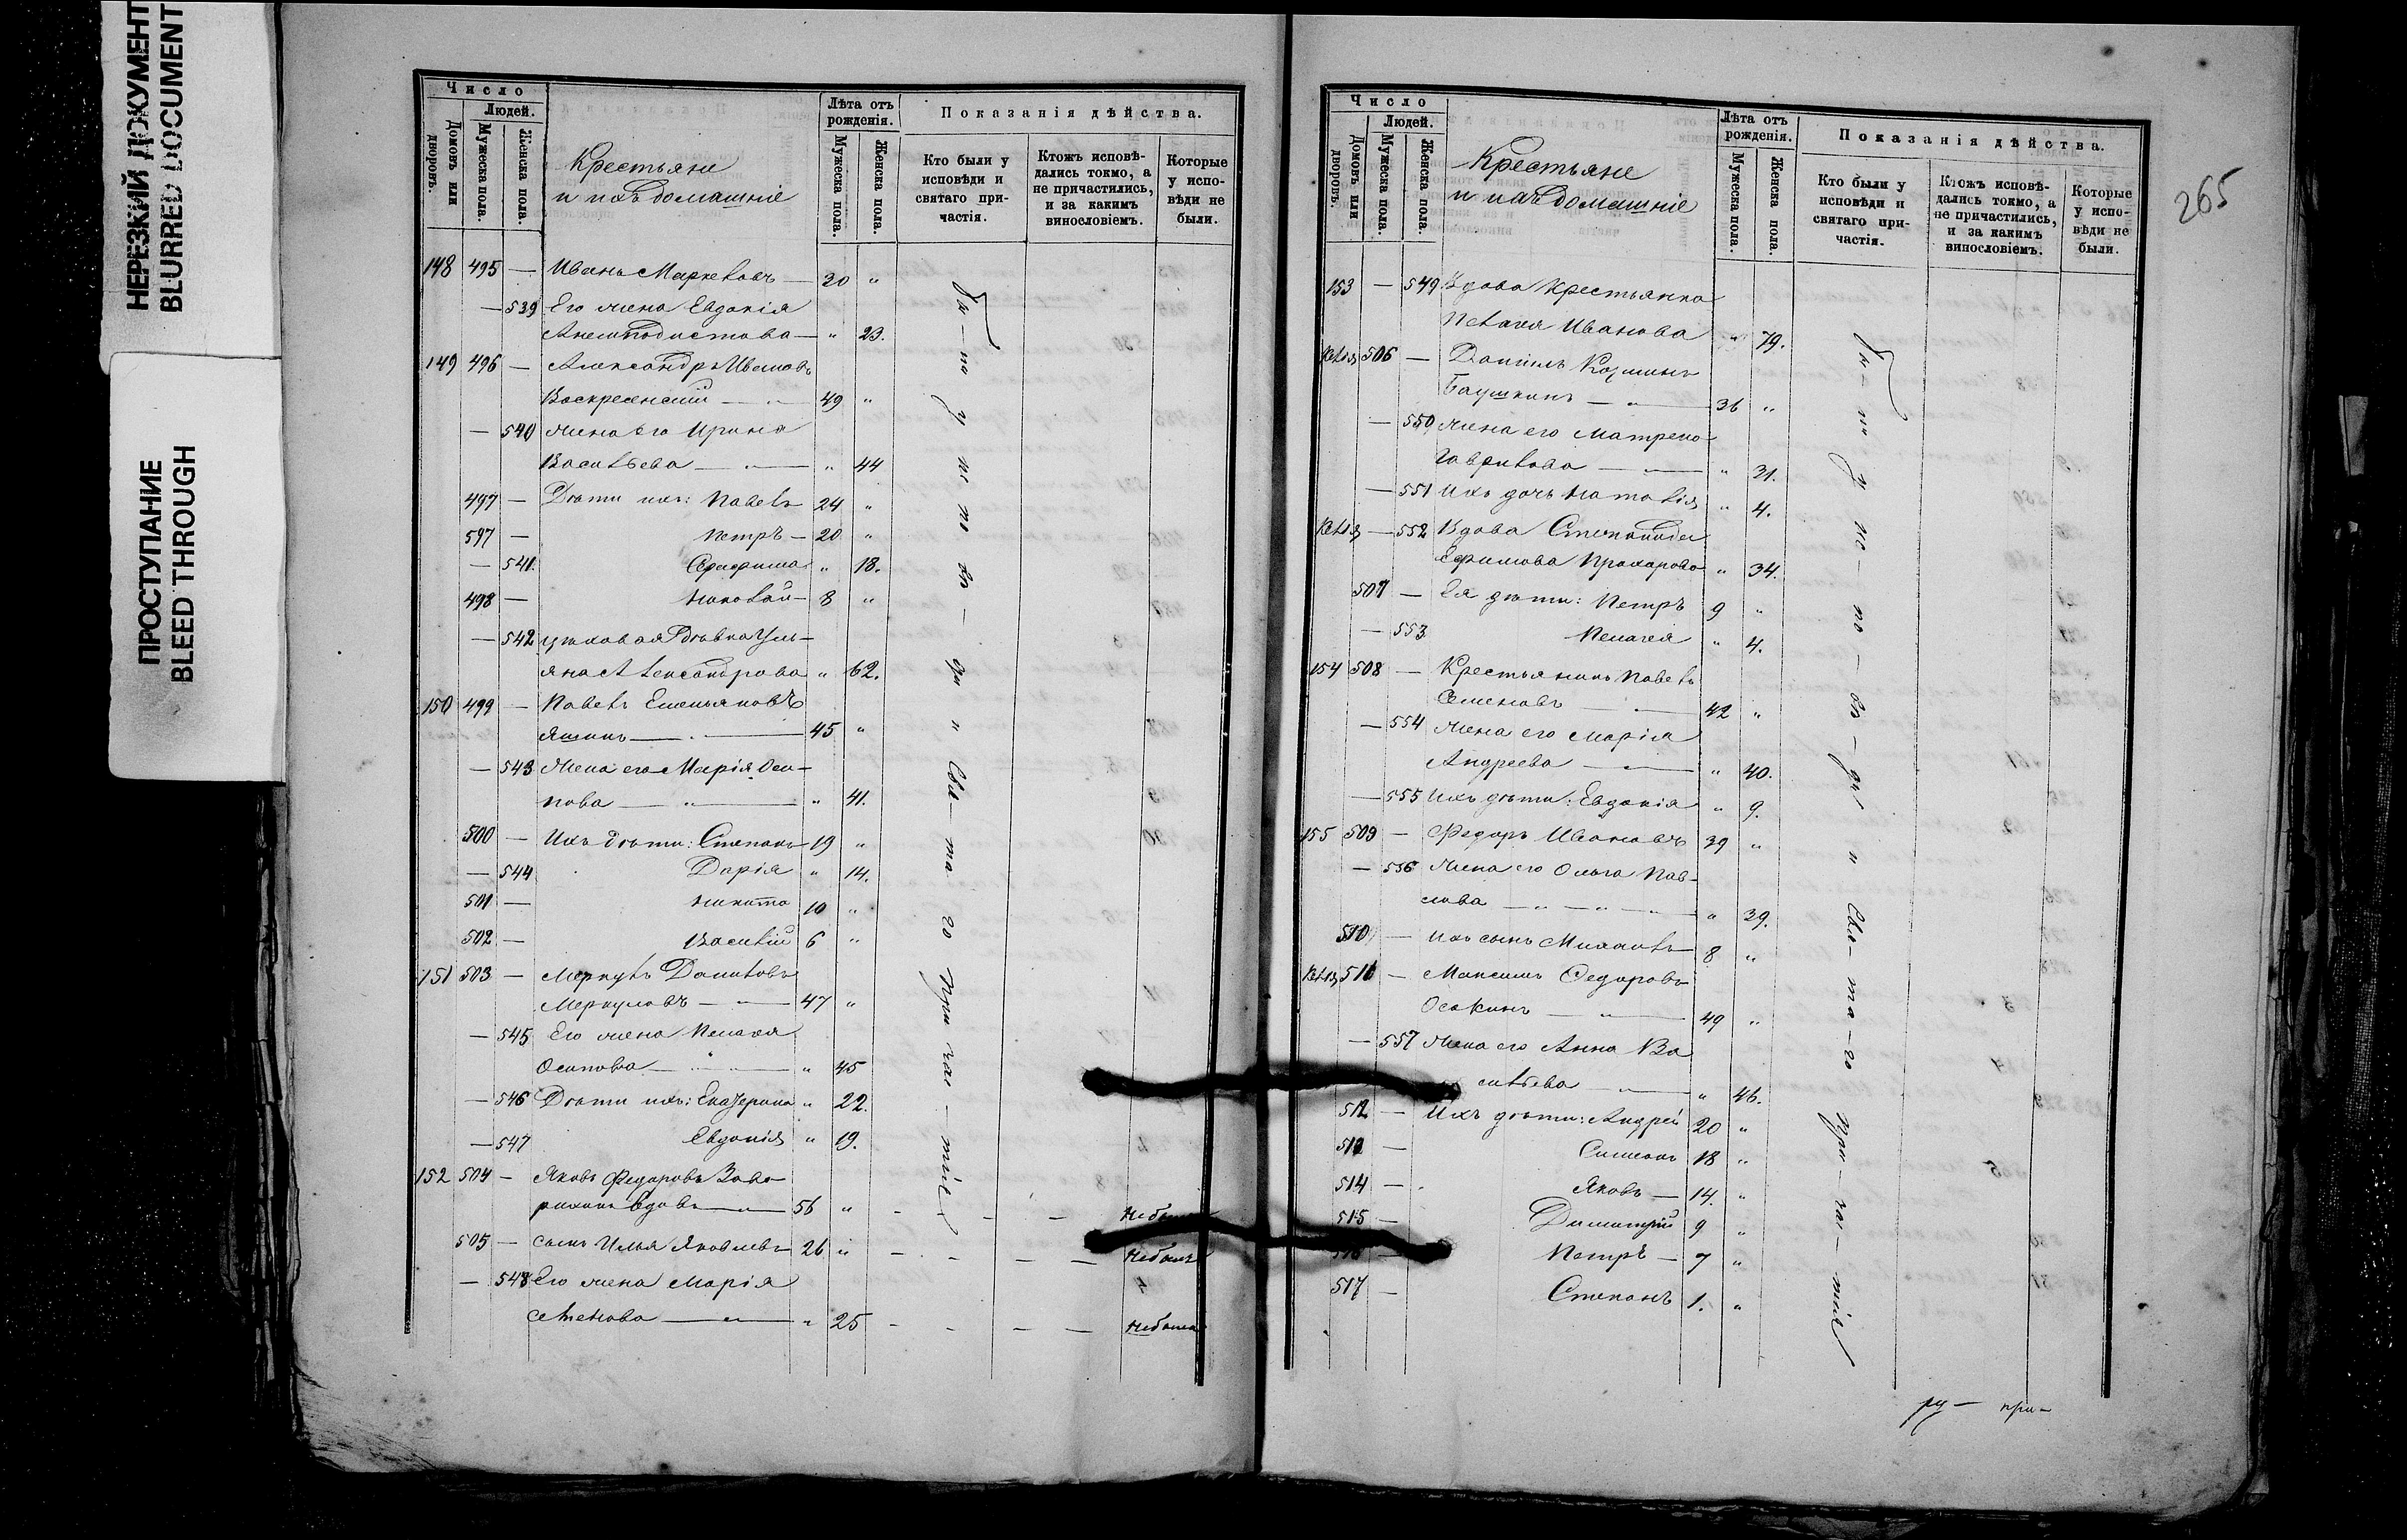 НЕРЕЗКИЙ ДОКУМЕНТ
BLURRED DOCUMENT
ПРОСТУПАНИЕ
BLEED THROUGH
Число
Людей.
Домовъ или дворовъ.
Мужеска пола.
Женска пола.
Крестьяне
и ихъ домашніе
Лѣта отъ рожденія.
Мужеска пола.
Женска пола.
Показанія дѣйства.
Кто были у исповѣди и святаго причастія.
Ктожъ исповѣдались токмо, а не причастились, и за какимъ винословіемъ.
Которые у исповѣди не были.
148 495 — Иванъ Марковъ — 20 "
— 539 Его жена Евдокія
Анемподистова — " 23.
149 496 — Александръ Ивановъ
Воскресенскій — " — 49 "
— 540 жена его Ирина
Васильева — " — " 44
497 — Дѣти ихъ: Павелъ 24 "
597 — Петръ — 20 "
— 541. Серафима " 18.
498 — Николай — 8 "
— 542 Уль-
яна Александрова " 62.
150 499 — Павелъ Емельяновъ
Яшинъ — 45 "
— 543 Жена его Марія Оси-
пова — " — " 41.
500 — Ихъ дѣти: Степанъ 19 "
— 544 Дарія " 14.
501 — Никита 10 "
502 — Василій 6 "
151 503 — Меркулъ Даниловъ
Меркуловъ — " — 47 "
— 545 Его жена Пелагея
Осипова — " — " 45
— 546 Дѣти ихъ: Екатерина " 22.
— 547 Евдокія " 19.
152 504 — Яковъ Федоровъ Заво-
вдовъ — 56 " — — — Не былъ
505 — сынъ Илья Яковлевъ 26 " — — — — Не былъ
— 548 Его жена Марія
Семенова — " — " 25 — — — — Не была
Бы-ли у ис-по-вѣ-ди и Свя-та-го При-час-тія
265
Число
Людей.
Домовъ или дворовъ.
Мужеска пола.
Женска пола.
Крестьяне
и ихъ домашніе
Лѣта отъ рожденія.
Мужеска пола.
Женска пола.
Показанія дѣйства.
Кто были у исповѣди и святаго причастія.
Ктожъ исповѣдались токмо, а не причастились, и за какимъ винословіемъ.
Которые у исповѣди не были.
153 — 549 Вдова Крестьянка
Пелагея Иванова " 79.
Келія 506 — Даніилъ Козминъ
Баушкинъ — " — 36 "
— 550 Жена его Матрена
Гаврилова — " — " 31.
— 551 Ихъ дочь Наталія " 4.
Келія — 552 Вдова Степанида
Ефимова Прохорова " 34.
507 — Ея дѣти: Петръ 9 "
— 553 Пелагея " 4.
154 508 — Крестьянинъ Павелъ
Семеновъ — 42 "
— 554 Жена его Марія
Андреева — " — " 40.
— 555 Ихъ дѣти: Евдокія " 9.
155 509 — Федоръ Ивановъ 39 "
— 556 Жена его Ольга Пав-
лова — " — " — " 39.
510 — Ихъ сынъ Михаилъ 8 "
Келія 511 — Максимъ Федоровъ
Осокинъ — " — 49 "
— 557 Жена его Анна Ва
сильева — " — " 46.
512 — Ихъ дѣти: Андрей 20 "
513 — Симеонъ 18 "
514 — Яковъ — 14. "
515 — Димитрій 9 "
516 — Петръ — 7 "
517 — Степанъ 1. "
Бы-ли у ис-по-вѣ-ди и Свя-та-го При-час-тія
ру— при—